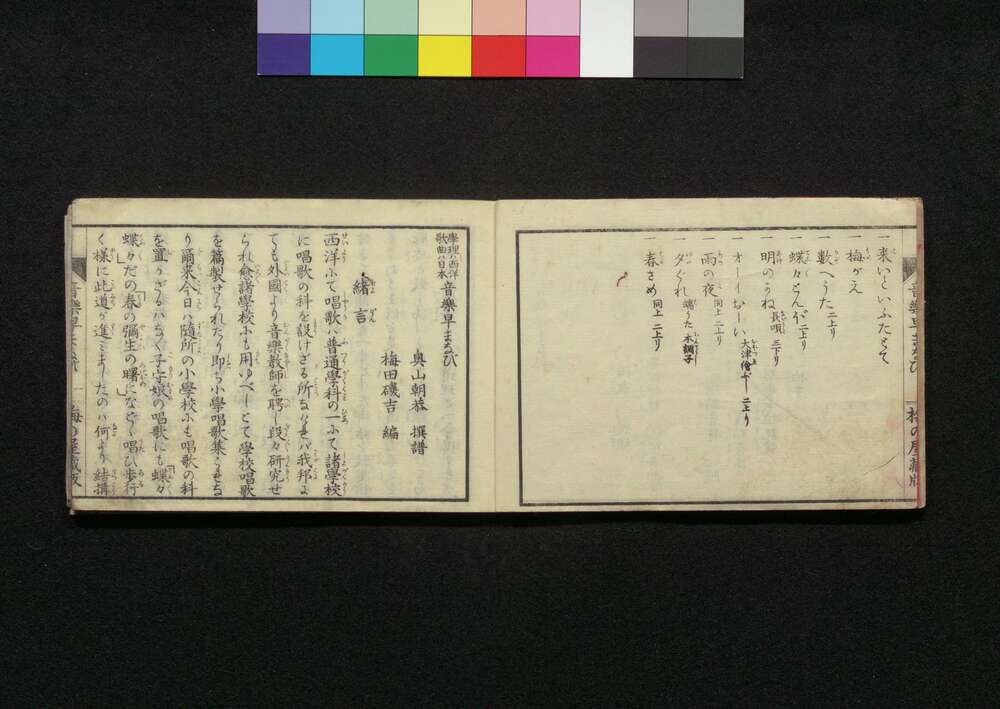 一 来いといふたとて
一 梅がえ
一 数へうた 二上り
一 蝶々とんぼ 二上り
一 明のかね 長唄 三下り
一 オーイおーい 大津絵ぶし 二上り
一 雨の夜 同上 二上り
一 夕ぐれ 端うた 本調子
一 春さめ 同上 二上り
學理ハ西洋歌曲ハ日本 音樂早まなび
奥山朝恭 撰譜
梅田磯吉 編
緒言
西洋ふて唱歌ハ普通學科の一ふて諸學校
に唱歌の科を設けざる所なけれバ我邦よ
ても外國より音樂教師を聘し段々研究せ
られ愈諸學校ふも用ゆべしとて學校唱歌
を篇製せられたり即ち小學唱歌集
り爾来今日ハ随所の小學校ふも唱歌の科
を置かざるハなく子守娘の唱歌にも蝶々
蝶々だの「春の彌生の曙に」などゝ唱ひ歩行
く様に此道が進ミましたのハ何より結構